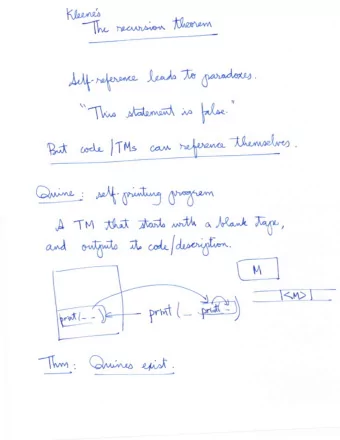 Kleene's
The recursion theorem
Self-reference leads to paradoxes.
"This statement is false."
But code/TMs can reference themselves.
Quine: self-printing program
A TM that starts with a blank tape,
and outputs its code/description.
M
print(- -) print(- print -)
|<M>|
Thm: Quines exist.